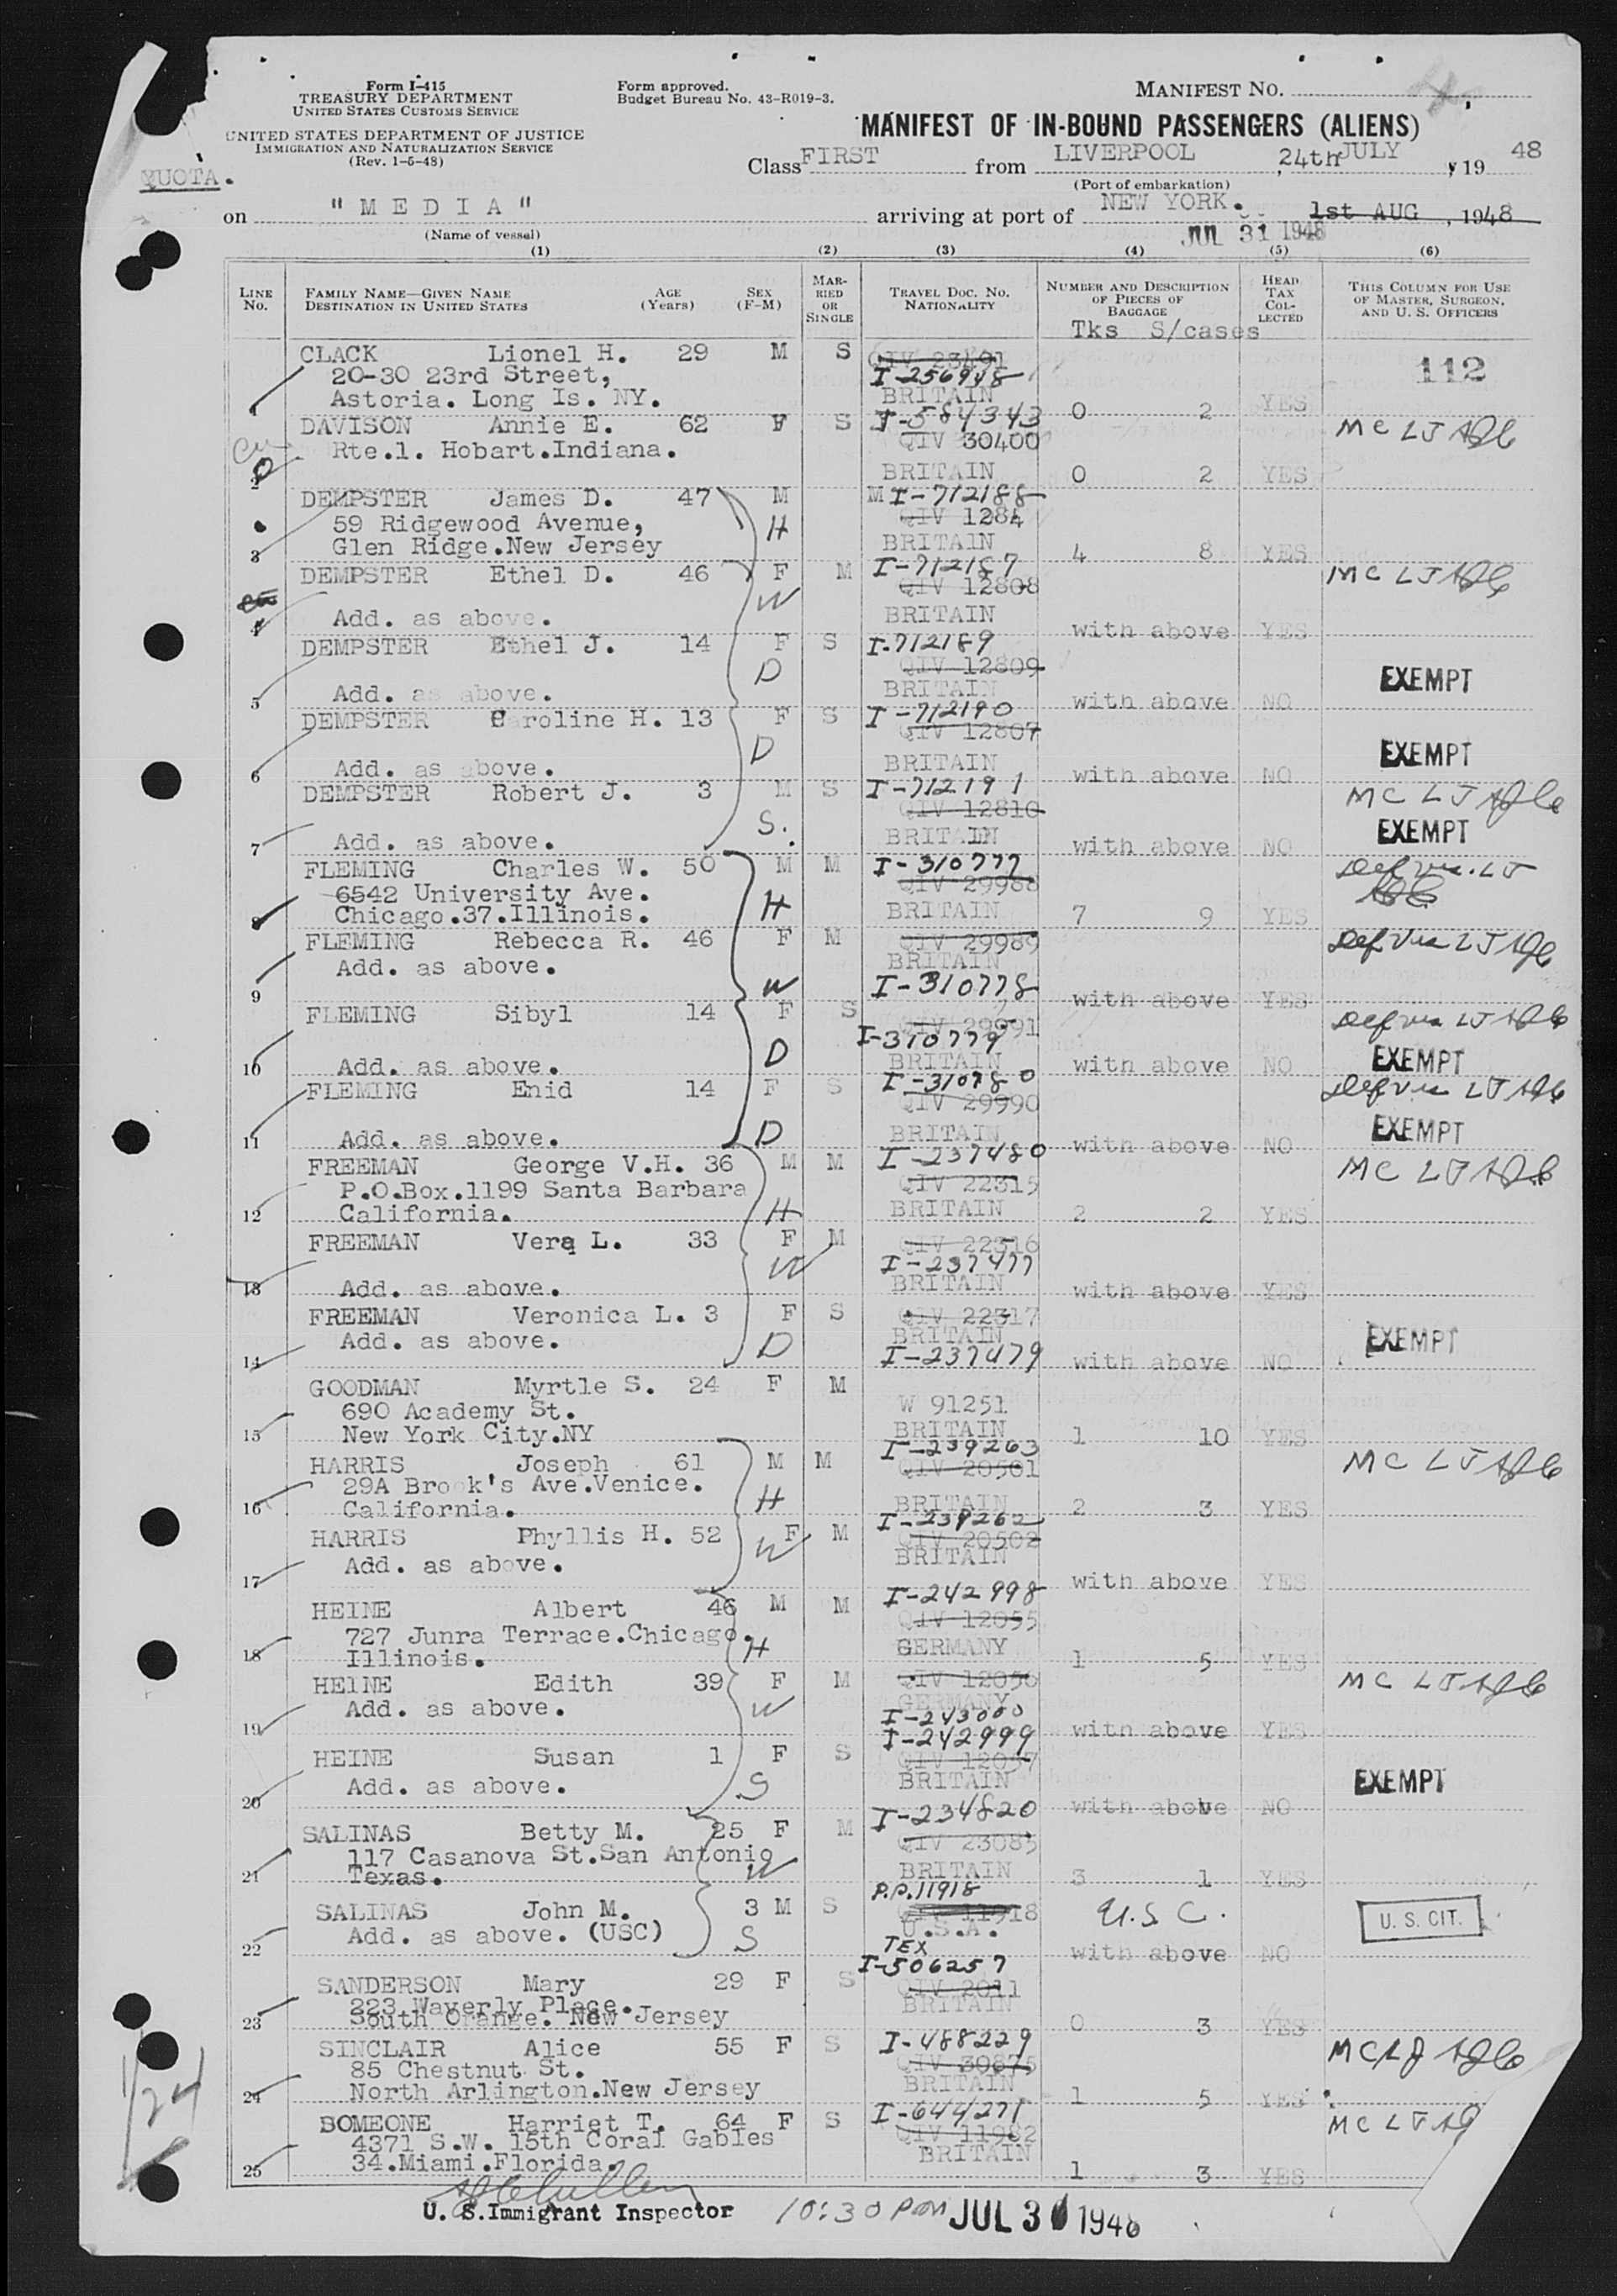 Form I-415
TREASURY DEPARTMENT
UNITED STATES CUSTOMS SERVICE
UNITED STATES DEPARTMENT OF JUSTICE
IMMIGRATION AND NATURALIZATION SERVICE
(Rev. 1-5-48)
Form approved.
Budget Bureau No. 43-R019-3.
MANIFEST NO.
MANIFEST OF IN-BOUND PASSENGERS (ALIENS)
QUOTA.
Class FIRST from LIVERPOOL, 24th JULY, 1948
(Port of embarkation)
on "MEDIA" arriving at port of NEW YORK. 1st AUG, 1948
(Name of vessel)
JUL 31 1948
(1) (2) (3) (4) (5) (6)
LINE No. FAMILY NAME—GIVEN NAME DESTINATION IN UNITED STATES AGE (Years) SEX (F-M) MARRIED OR SINGLE TRAVEL DOC. NO. NATIONALITY NUMBER AND DESCRIPTION OF PIECES OF BAGGAGE HEAD TAX COLLECTED THIS COLUMN FOR USE OF MASTER, SURGEON, AND U. S. OFFICERS
Tks S/cases
CLACK Lionel H. 29 M S
20-30 23rd Street, I-256948 112
1 Astoria. Long Is. NY. BRITAIN 0 2 YES
DAVISON Annie E. 62 F S I-584343 MC LJ
Rte.1. Hobart.Indiana. QIV 30400
2 BRITAIN 0 2 YES
DEMPSTER James D. 47 M M I-712188
59 Ridgewood Avenue, H QIV 1284
3 Glen Ridge.New Jersey BRITAIN 4 8 YES
DEMPSTER Ethel D. 46 F M I-712187 MC LJ
W QIV 12808
4 Add. as above. BRITAIN with above YES
DEMPSTER Ethel J. 14 F S I-712189
D QIV 12809 EXEMPT
5 Add. as above. BRITAIN with above NO
DEMPSTER Caroline H. 13 F S I-712190
D QIV 12807 EXEMPT
6 Add. as above. BRITAIN with above NO
DEMPSTER Robert J. 3 M S I-712191 MC LJ
S. QIV 12810 EXEMPT
7 Add. as above. BRITAIN with above NO
FLEMING Charles W. 50 M M I-310777
6542 University Ave. H QIV 29988
8 Chicago.37.Illinois. BRITAIN 7 9 YES
FLEMING Rebecca R. 46 F M QIV 29989
Add. as above. BRITAIN
9 W I-310778 with above YES
FLEMING Sibyl 14 F S QIV 29991
I-310779
10 Add. as above. D BRITAIN with above NO EXEMPT
FLEMING Enid 14 F S I-310780
QIV 29990
11 Add. as above. D BRITAIN with above NO EXEMPT
FREEMAN George V.H. 36 M M I-237480 MC LJ
P.O.Box.1199 Santa Barbara QIV 22315
12 California. H BRITAIN 2 2 YES
FREEMAN Vera L. 33 F M QIV 22316
W I-237477
13 Add. as above. BRITAIN with above YES
FREEMAN Veronica L. 3 F S QIV 22317
Add. as above. BRITAIN EXEMPT
14 D I-237479 with above NO
GOODMAN Myrtle S. 24 F M
690 Academy St. W 91251
15 New York City.NY BRITAIN 1 10 YES
HARRIS Joseph 61 M M I-239263 MC LJ
29A Brook's Ave.Venice. QIV 20501
16 California. H BRITAIN 2 3 YES
HARRIS Phyllis H. 52 F M I-239262
QIV 20502
Add. as above. W BRITAIN
17 with above YES
HEINE Albert 46 M M I-242998
QIV 12055
727 Junra Terrace.Chicago. H GERMANY
18 Illinois. 1 5 YES
HEINE Edith 39 F M QIV 12056 MC LJ
Add. as above. W GERMANY
I-243000
19 with above YES
I-242999
HEINE Susan 1 F S QIV 12057
Add. as above. S BRITAIN EXEMPT
20 with above NO
SALINAS Betty M. 25 F M I-234820
QIV 23085
117 Casanova St.San Antonio W BRITAIN
21 Texas. 3 1 YES
P.P.11918
SALINAS John M. 3 M S U.S.C. U. S. CIT.
Add. as above. (USC) S U.S.A.
22 TEX with above NO
I-506257
SANDERSON Mary 29 F S QIV 2011
223 Waverly Place. BRITAIN
23 South Orange. New Jersey 0 3 YES
SINCLAIR Alice 55 F S I-488229
85 Chestnut St. QIV 30875
24 North Arlington.New Jersey BRITAIN 1 5 YES
BOMEONE Harriet T. 64 F S I-644271 MC LJ
4371 S.W. 15th Coral Gables QIV 11982
25 34.Miami.Florida. BRITAIN 1 3 YES
1/24
U. S. Immigrant Inspector 10:30 pm JUL 31 1948